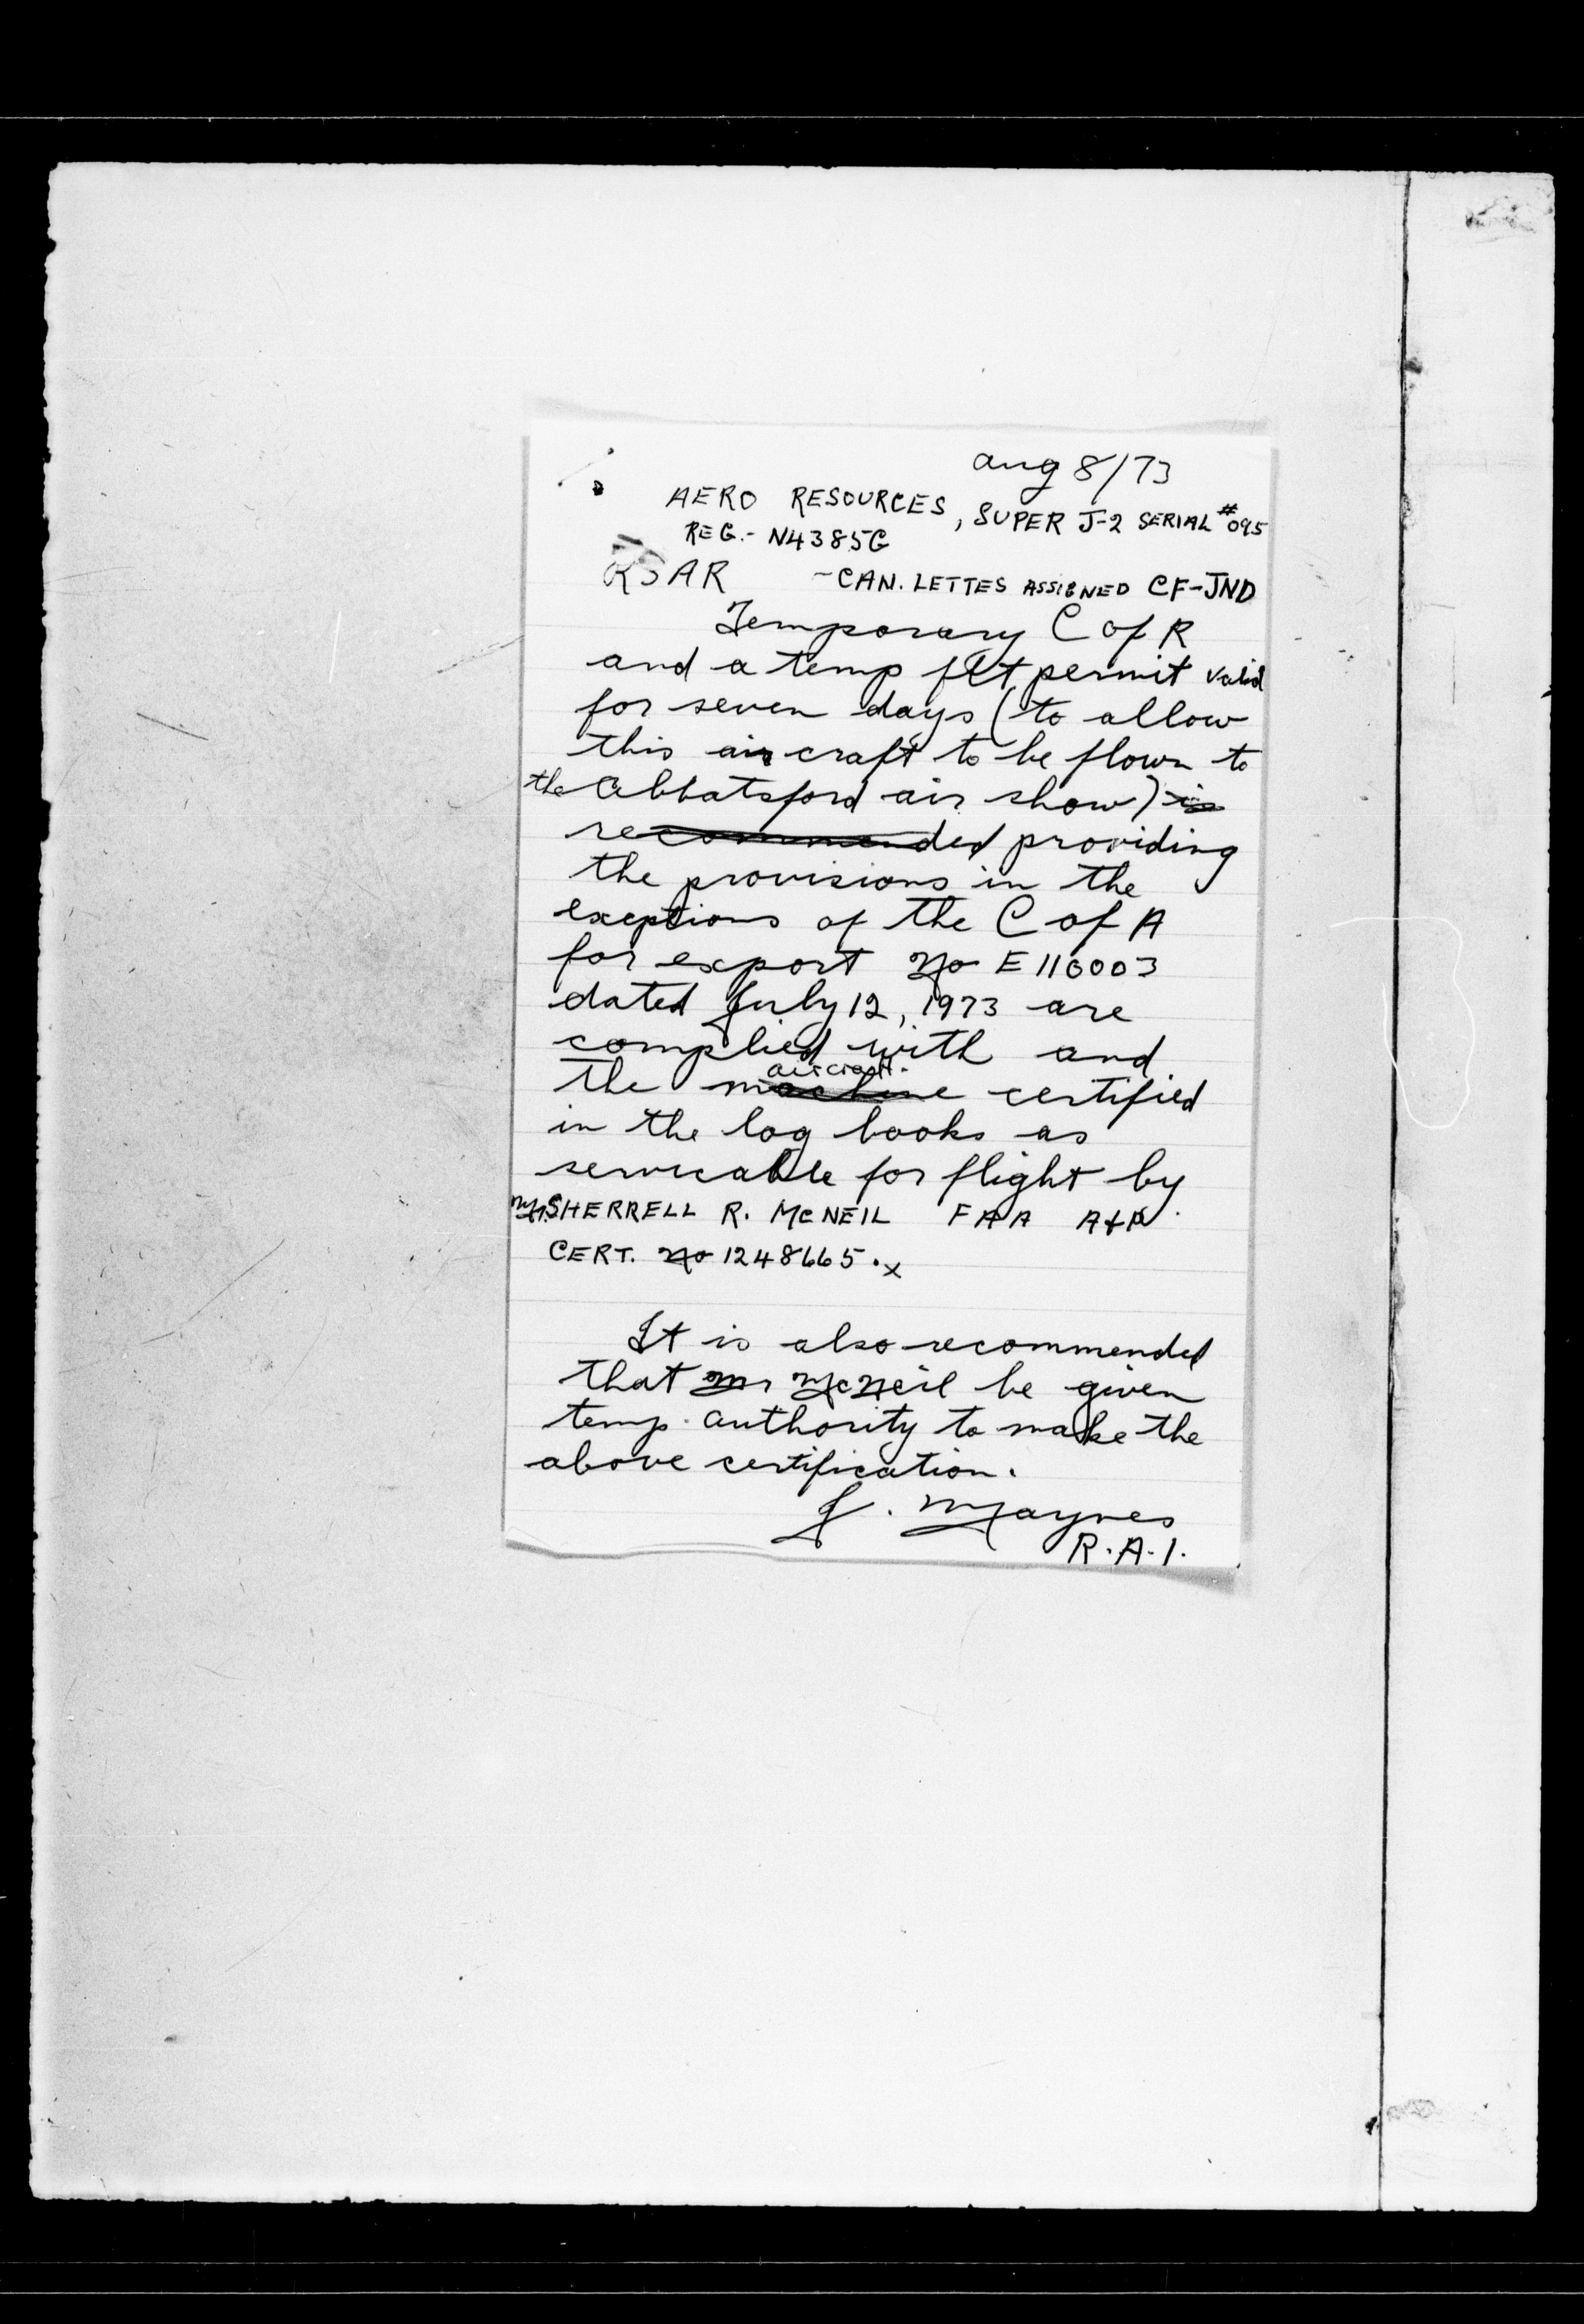 Aug 8/73
AERO RESOURCES, SUPER J-2 SERIAL #095
REG.- N4385G
RSAR -CAN. LETTES ASSIGNED CF-JND
Temporary C of R
and a temp flt permit valid
for seven days (to allow
this aircraft to be flown to
the Abbatsford air show) is
recommended providing
the provisions in the
exeptions of the C of A
for export No E110003
dated July 12, 1973 are
complied with and
aircraft
the machine certified
in the log books as
servicable for flight by
Mr. SHERRELL R. McNEIL FAA A&P
CERT. No 1248665.x
It is also recommended
that Mr McNeil be given
temp. authority to make the
above certification.
J. Maynes
R.A.I.